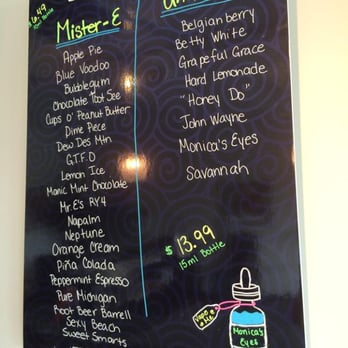 6.49
Mister-E
Apple Pie
Blue Voodoo
Bubblegum
Chocolate Toot See
Cups o' Peanut Butter
Dime Piece
Dew Des Mtn
G.T.F.D
Lemon Ice
Manic Mint Chocolate
Mr E's RY4
Napalm
Neptune
Orange Cream
Piña Colada
Peppermint Espresso
Pure Michigan
Root Beer Barrell
Sexy Beach
Sweet Smarts
Belgian berry
Betty White
Grapeful Grace
Hard Lemonade
"Honey Do"
John Wayne
Monica's Eyes
Savannah
$ 13.99
15ml Bottle
Monica's
Eyes